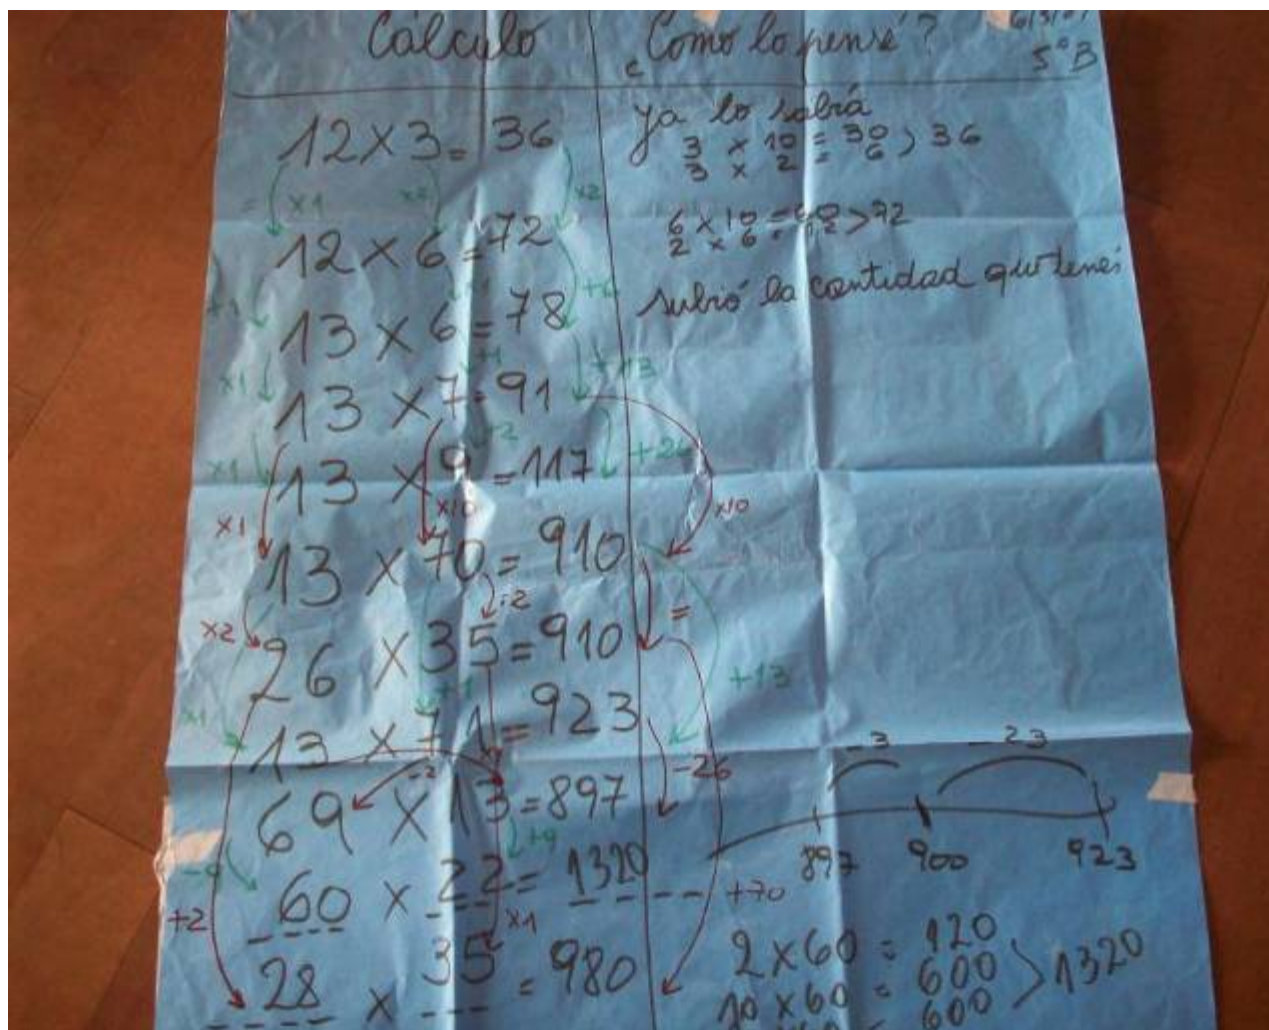 Cálculo ¿Como lo pensé?
5°B
12 x 3 = 36
x1 x2 x2
12 x 6 = 72
+1 +6
13 x 6 = 78
x1 +1 +13
13 x 7 = 91
x1 +2 +26
13 x 9 = 117
x1 x10 x10
13 x 70 = 910
x2 :2 =
26 x 35 = 910
x1 +1 +13
13 x 71 = 923
-2 -26
69 x 13 = 897
-9 +9
60 x 22 = 1320
+2 x1 +70
28 x 35 = 980
ya lo sabía
3 x 10 = 30 > 36
3 x 2 = 6
6 x 10 = 60 > 72
2 x 6 = 12
subió la cantidad que tenés
-3 -23
897 900 923
2 x 60 = 120
10 x 60 = 600 > 1320
600